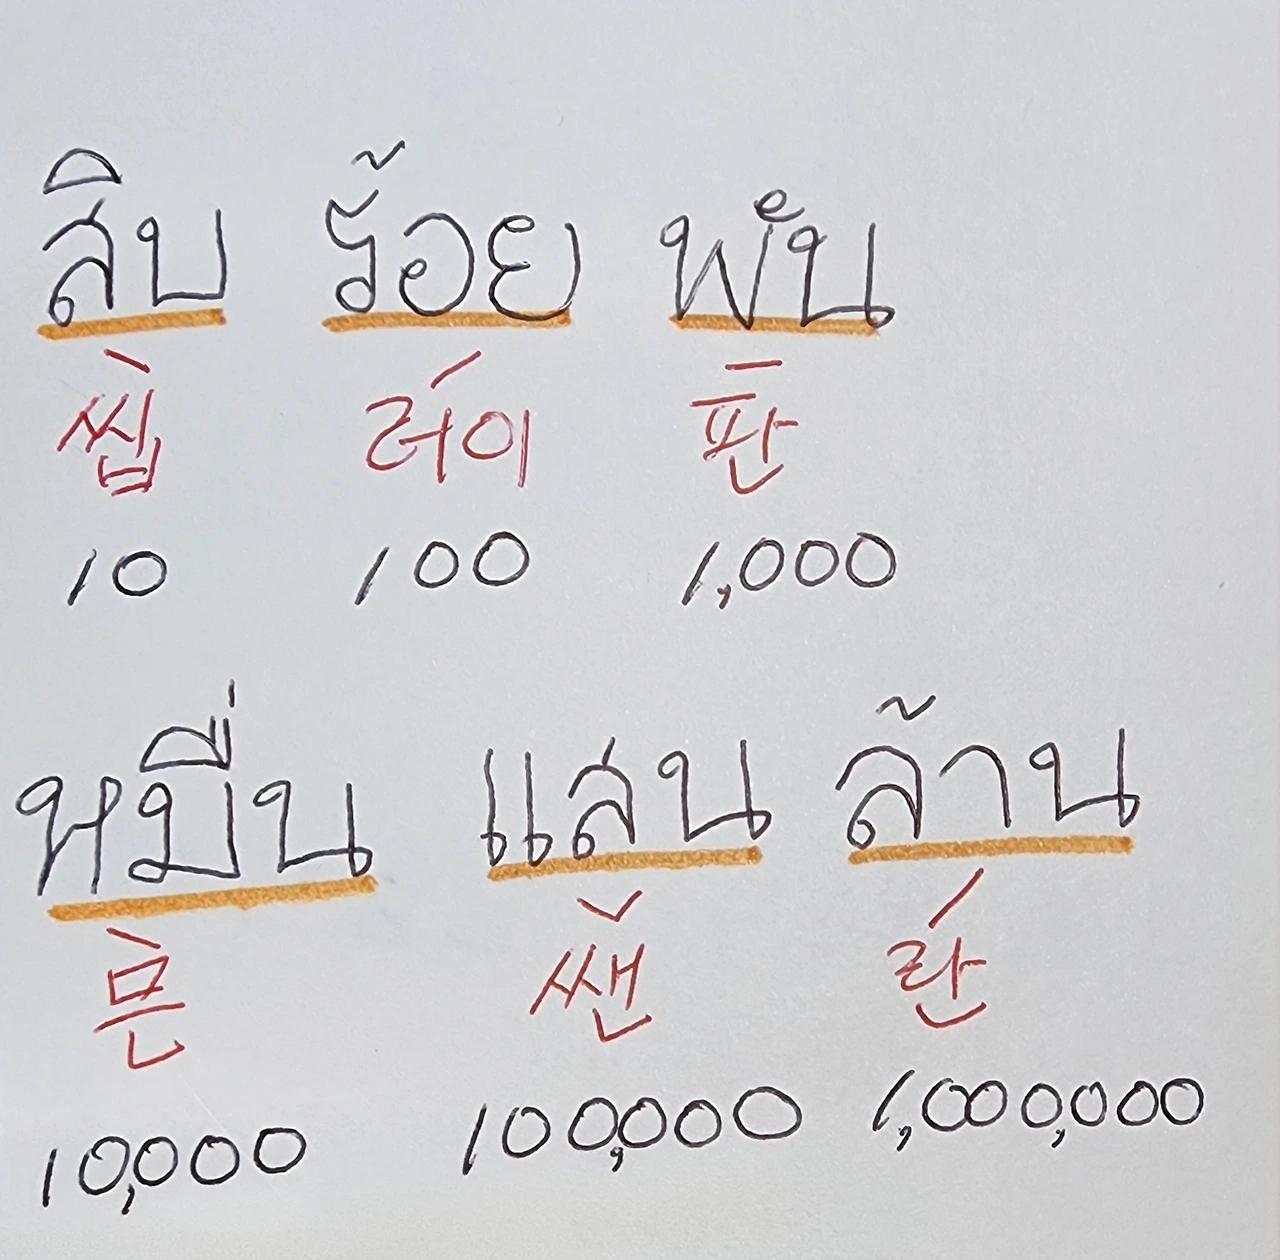 สิบ ร้อย พัน
씹 러이 판
10 100 1,000
หมื่น แสน ล้าน
믄 쌘 란
10,000 100,000 1,000,000